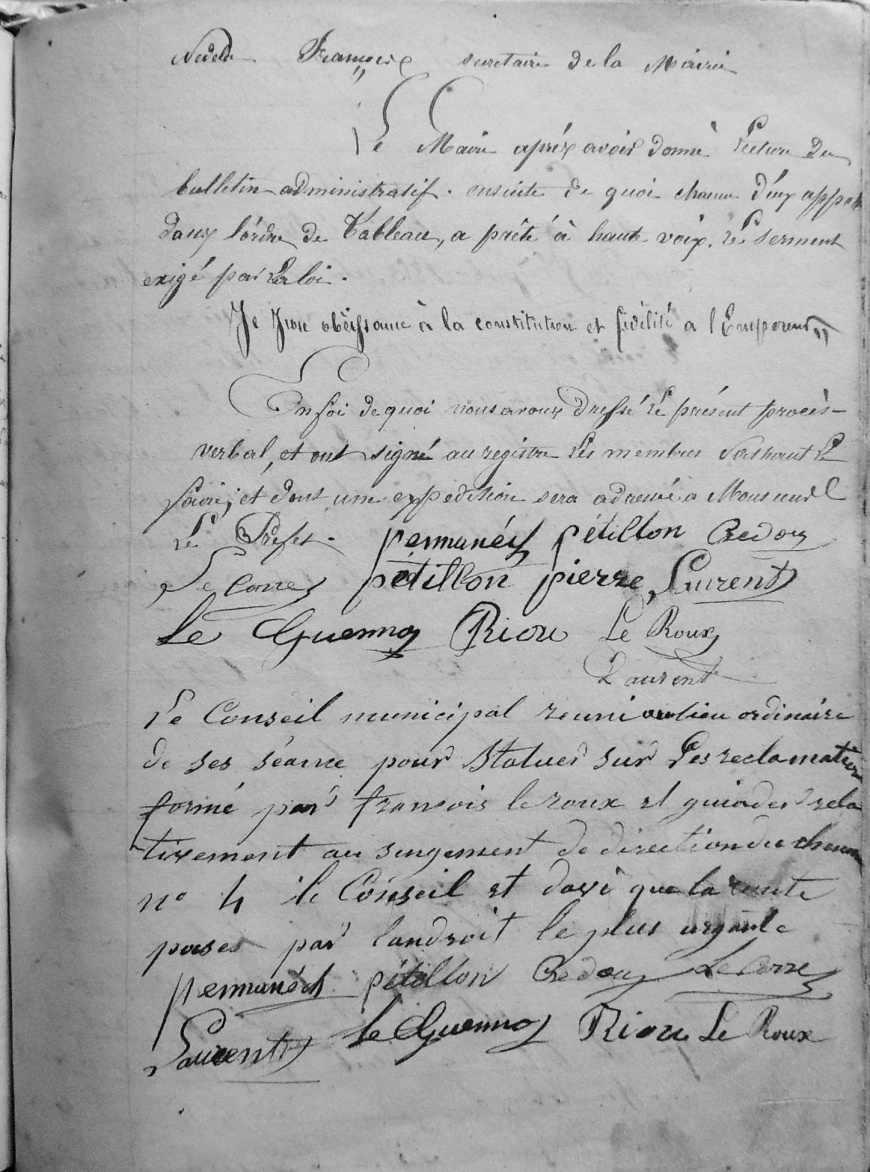 François secretaire de la Mairie
Le Maire après avoir donné Lecture du
bulletin administratif. ensuite de quoi chacun d'eux appelé
dans l'ordre de Tableau, a prêté à haute voix, le serment
exigé par la loi.
Je Jure obéissance à la constitution et fidélité a l'Empereur
En foi de quoi nous avons dressé le présent procès-
verbal, et ont signé au registre les membres
et dont une expedition sera adressée a Monsieur
Le Préfet. permanéch pétillon Credou
Le Corre pétillon pierre Laurent
Le Guenno Riou Le Roux
Laurent
Le Conseil municipal reuni au lieu ordinaire
de ses séance pour statuer sur Les reclamation
formé par francois le roux et guiader rela
tivement au sengement de direction du chemin
n° 4 le Conseil et davi que la route
pases par landroit le plus
permanéch pétillon Credou Le Corre
Laurent Le Guenno Riou Le Roux